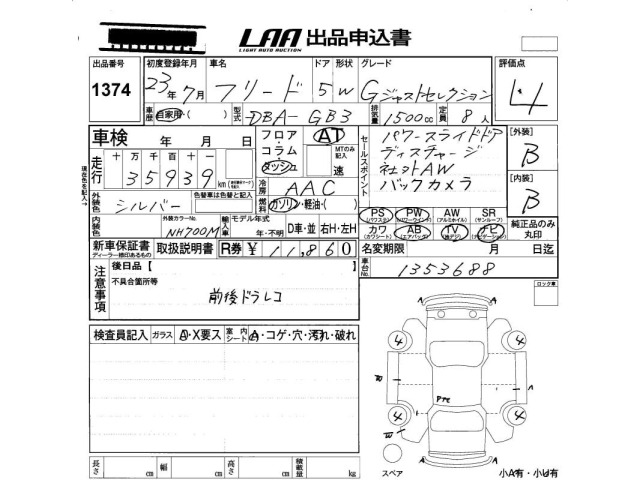 LAA 出品申込書
LIGHT AUTO AUCTION
出品番号 初度登録年月 車名 ドア 形状 グレード 評価点
1374 23年7月 フリード 5 W Gジャストセレクション 4
車歴 自家用・( ) 型式 DBA-GB3 排気量 1500cc 定員 8人
車検 年 月 日 フロア・コラム・ダッシュ AT MTのみ記入 速
セールスポイント パワースライドドア
ディスチャージ
社外AW
バックカメラ
[外装] B
[内装] B
走行 十 万 千 百 十 一
35939 km
冷房 AAC
外装色 シルバー 色替車は色替と記入 燃料 ガソリン・軽油・( )
内装色 外装カラーNo. NH700M 輸入車 モデル年式 年・不明 D車・並 右H・左H
PS (パワステ) PW (パワーウインド) AW (アルミホイル) SR (サンルーフ)
カワ (カワシート) AB (エアバッグ) TV (地デジ) ナビ (ナビゲーション)
純正品のみ丸印
新車保証書 ディーラー捺印あるもの 取扱説明書 R券 ¥11,860 名変期限 月 日迄
注意事項 後日品【 】 車台No. 1353688
不具合箇所等
前後ドラレコ
ロック車
検査員記入 ガラス A・X要ス 室内シート A・コゲ・穴・汚れ・破れ
A A
4 4
W A
Pte
4 4
W
A A
スペア
長さ cm 幅 cm 高さ cm 積載量 kg
小A有・小U有